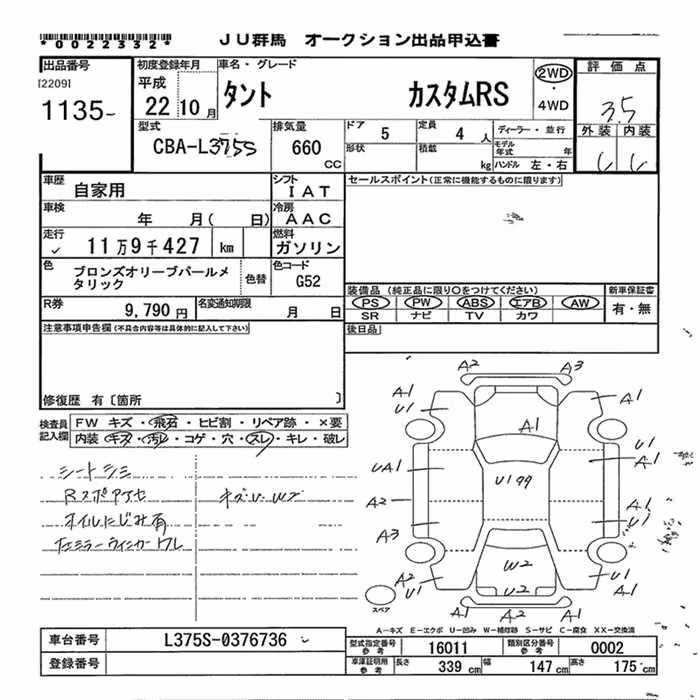 *0022332* ＪＵ群馬 オークション出品申込書
出品番号 [2209] 1135-
初度登録年月 平成 22 10 月
車名・グレード タント カスタムRS
2WD ・ 4WD
評価点 3.5
外装 内装
型式 CBA-L375S
排気量 660 CC
ドア 5 定員 4 人
形状 積載 kg
ディーラー・並行
モデル年式 年
ハンドル 左・右
車歴 自家用
シフト ＩＡＴ
車検 年 月( 日)
冷房 ＡＡＣ
走行 11万9千427 km
燃料 ガソリン
色 ブロンズオリーブパールメタリック
色替
色コード G52
R券 9,790 円
名変通知期限 月 日
セールスポイント(正常に機能するものに限ります)
装備品 (純正品に限り○をつけてください)
PS PW ABS エアB AW
SR ナビ TV カワ
新車保証書 有・無
後日品
注意事項申告欄 (不具合内容等は具体的に記入して下さい)
修復歴 有〔箇所 〕
検査員記入欄
FW キズ・飛石・ヒビ割・リペア跡・×要
内装・キズ・汚レ・コゲ・穴・スレ・キレ・破レ
シートシミ
キズ U. W2
オイルにじみ有
A2 A3
A1 U1 A1
A1
UA1 U199 U1 A1
A2 A1
A3 U1
W2
A2 U1 U2 U1 A2
A1 A2
スペア
A－キズ E－エクボ U－凹み W－補修跡 S－サビ C－腐食 XX－交換済
車台番号 L375S-0376736
登録番号
型式指定番号 参考 16011 類別区分番号 参考 0002
車庫証明用 参考 長さ 339 cm 幅 147 cm 高さ 175 cm